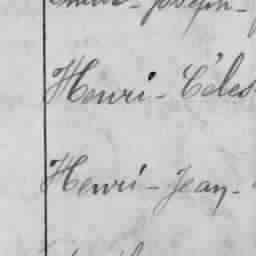 Joseph-
Henri-Céles
Henri-Jean-